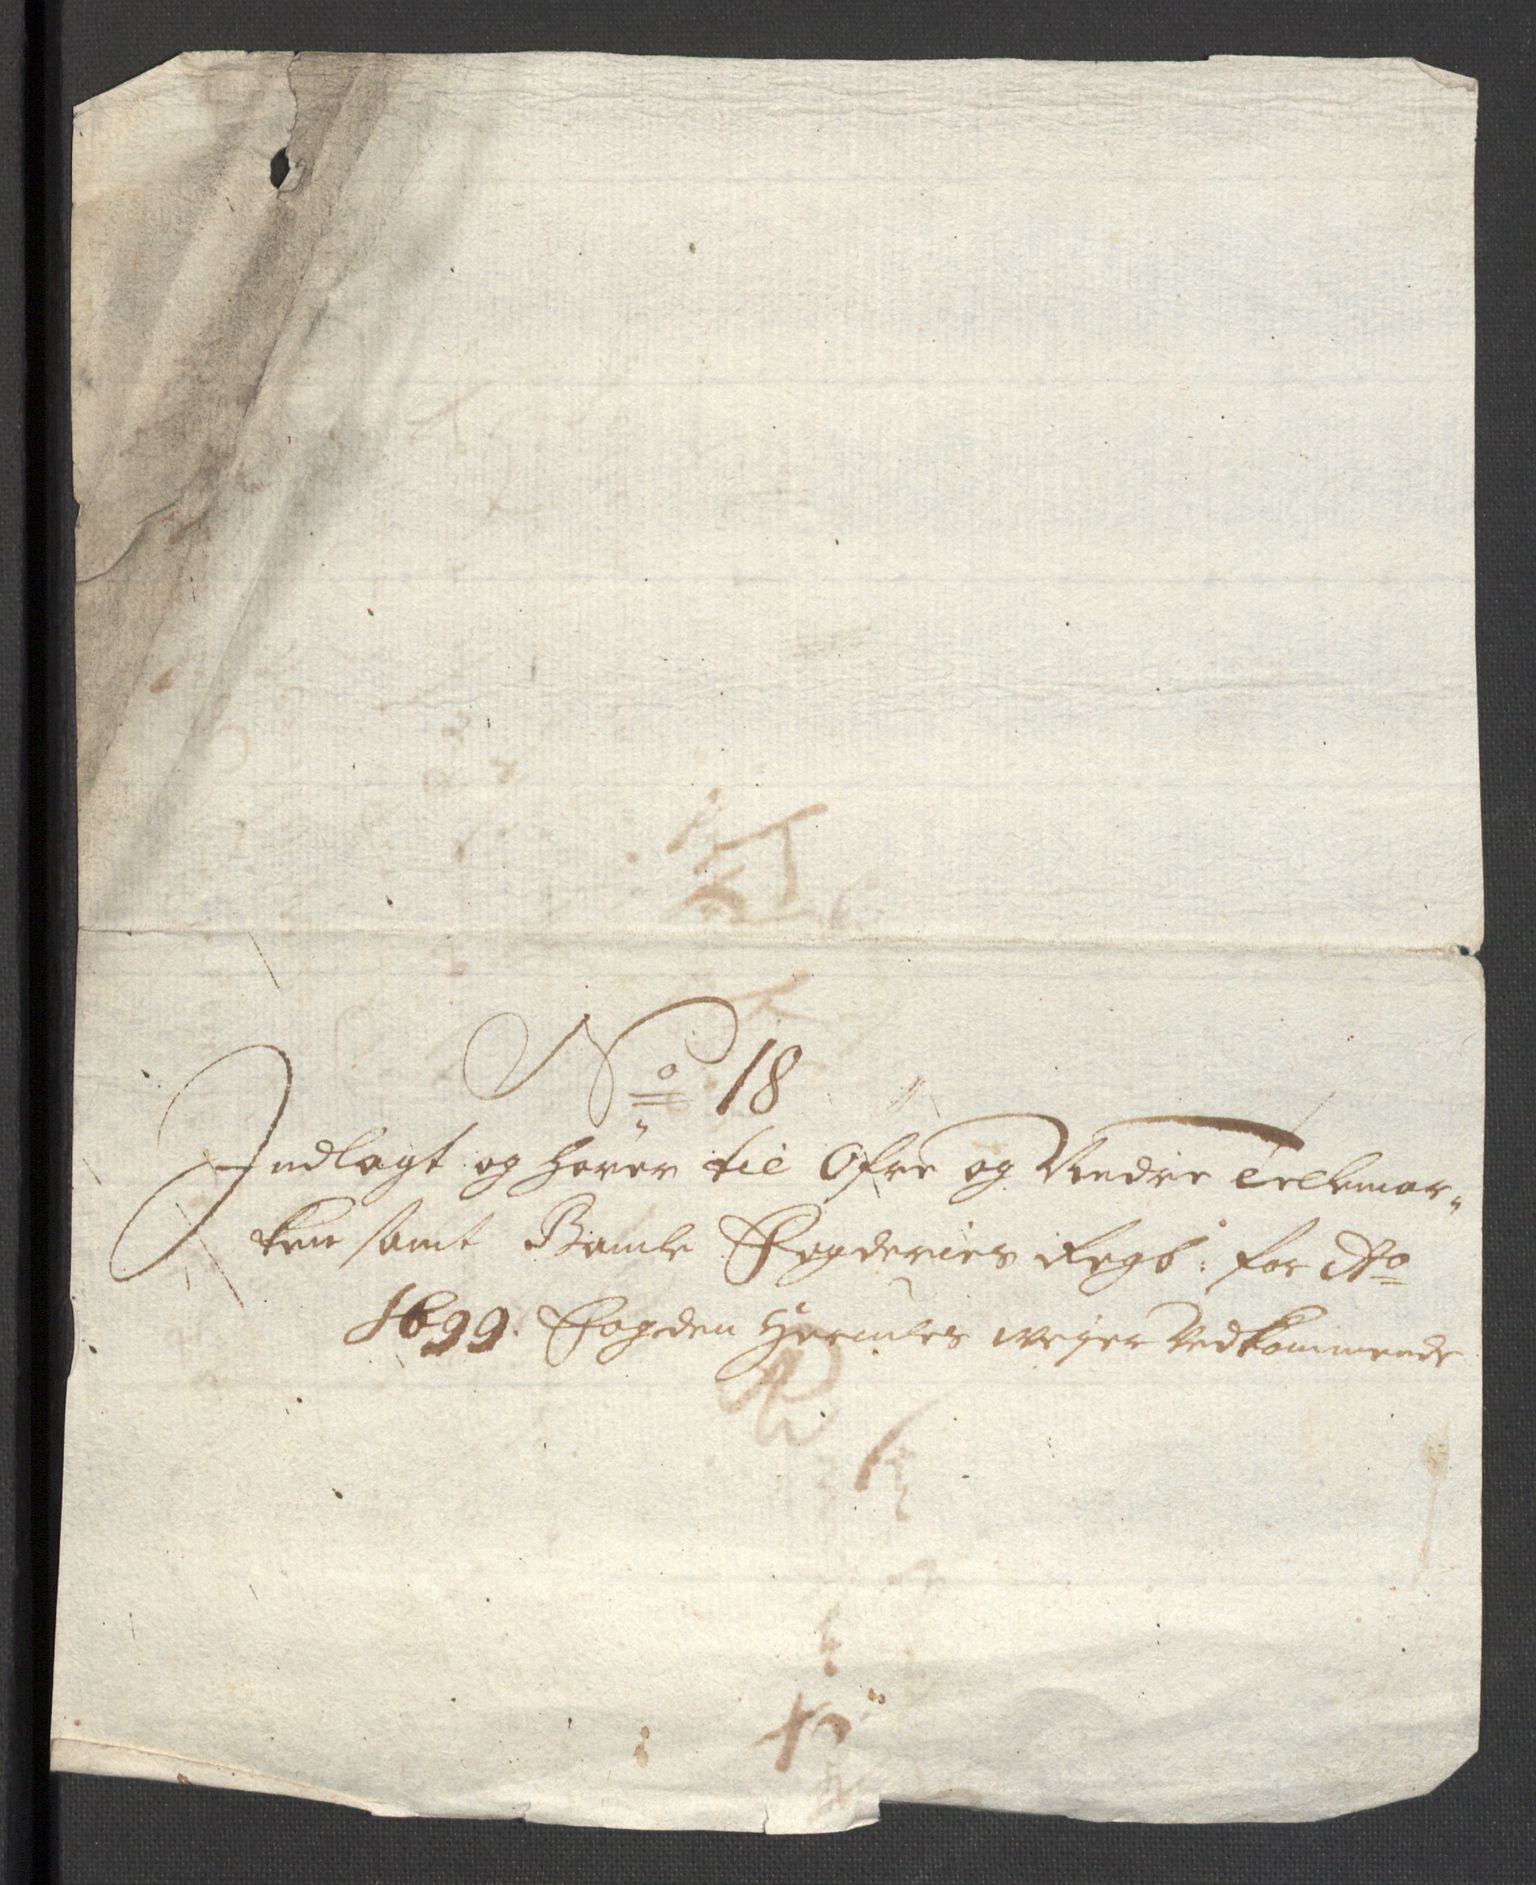 No 18
Indlagt og hörer til Ofre og Nedre Tellemar„
ken samt Bamle Fogderies Regb: for Ao
1699. Fogden Hermles weyer Vedkommende